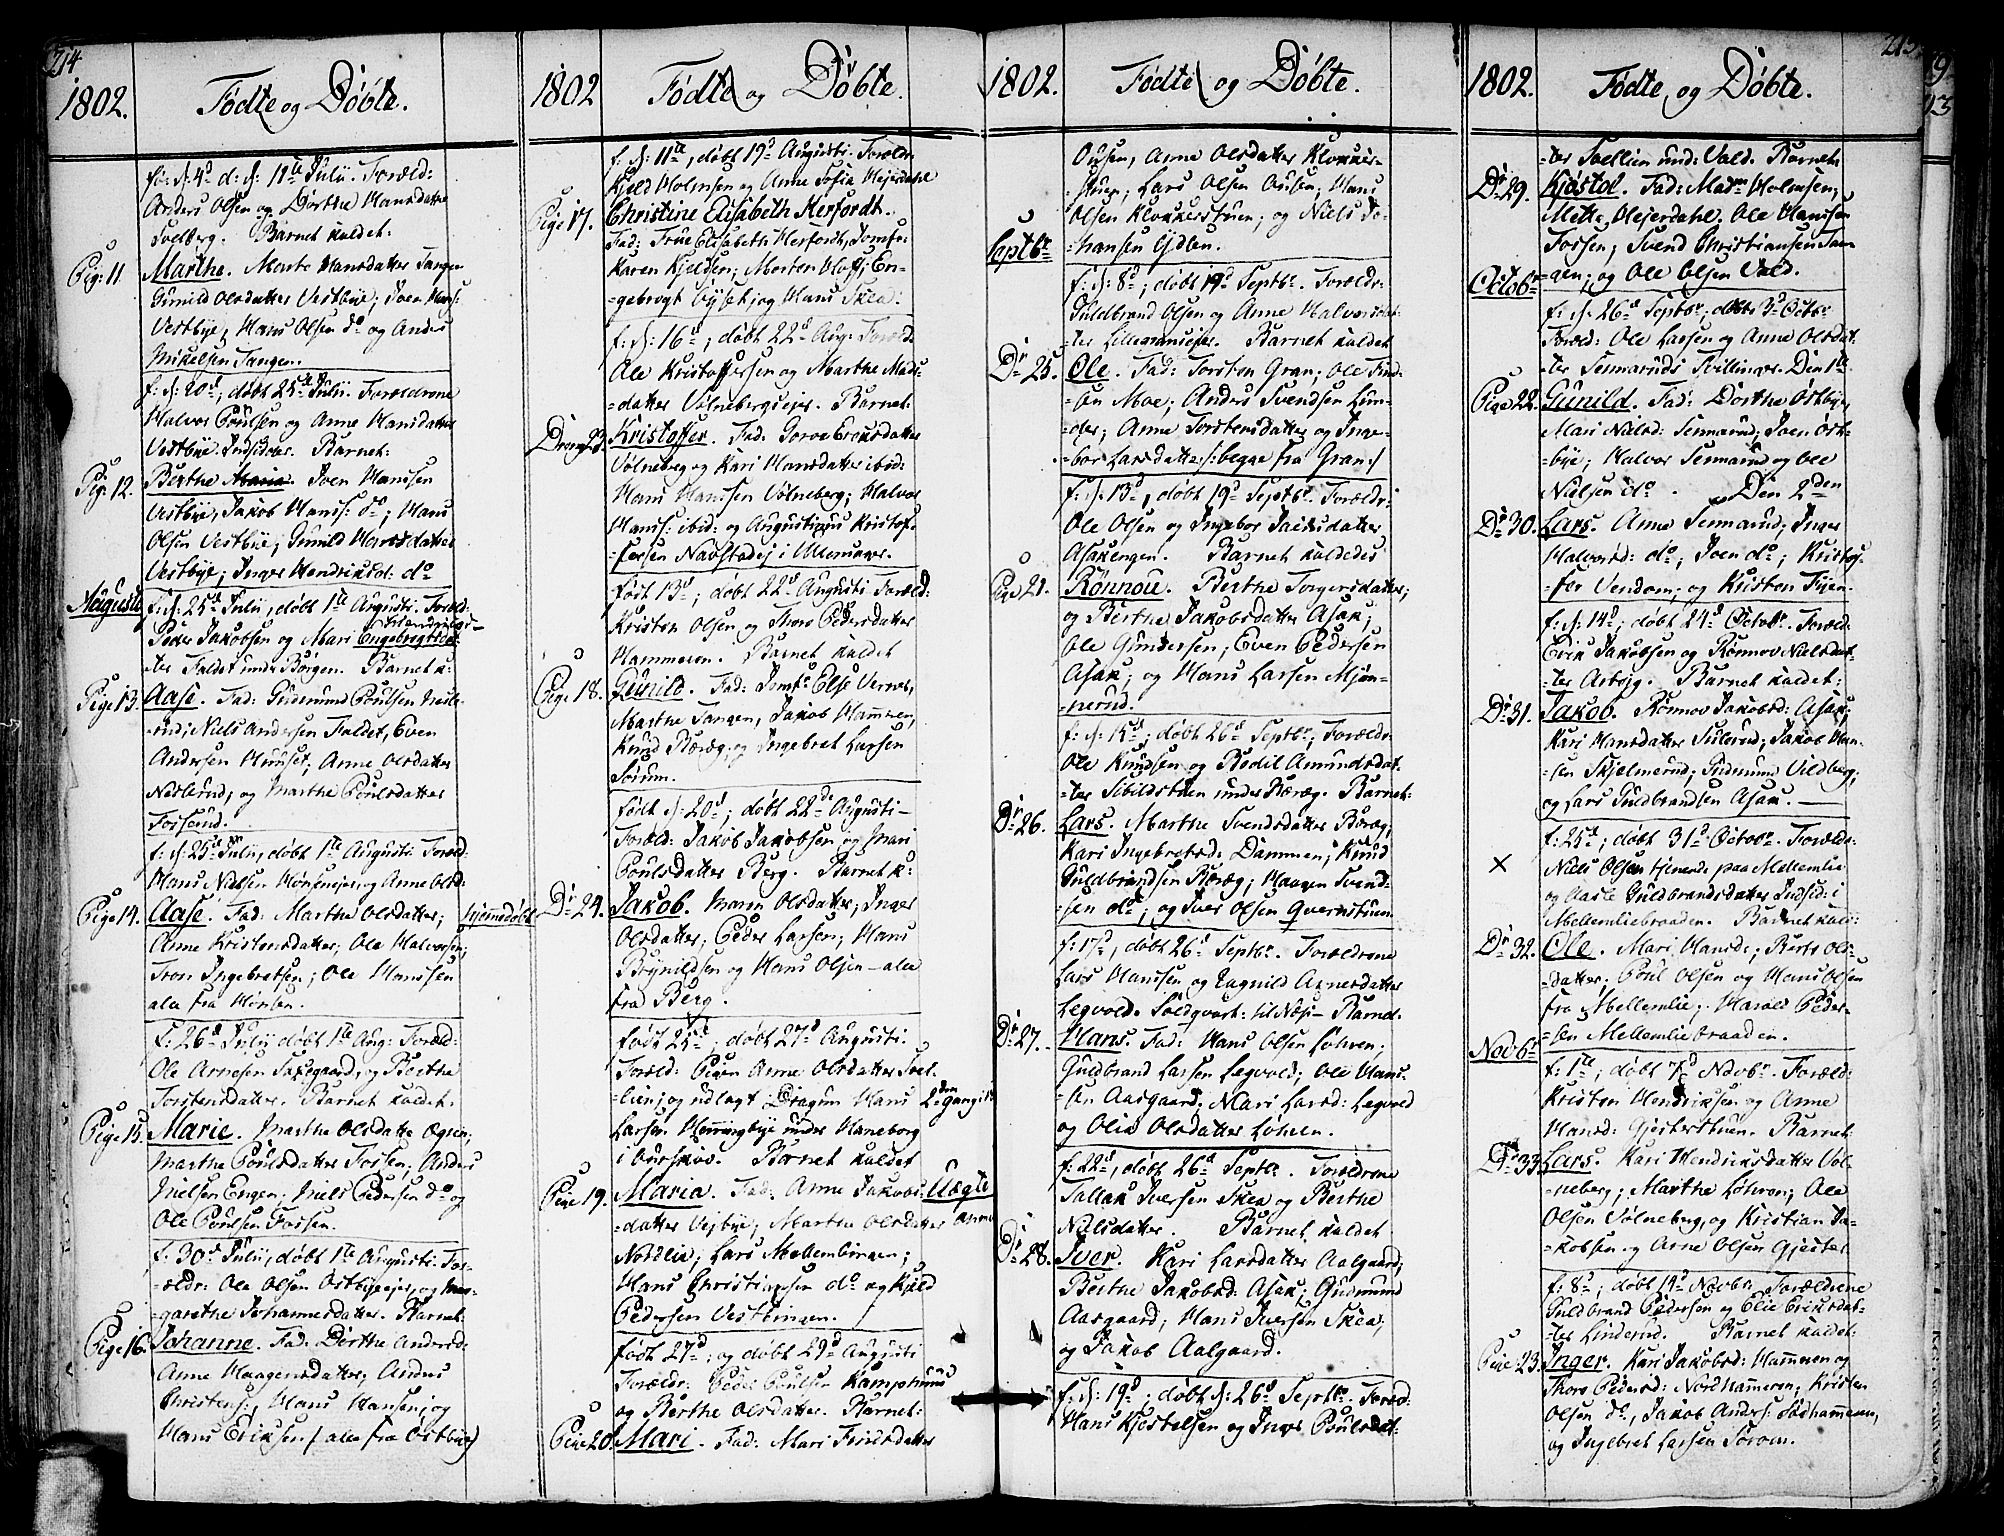 214
1802. Fødte og Døbte.
fø: d: 4d d: d: 11te Julii. Foræld:
Anders Olsen og Dorthe Hansdatter
Svelberg. Barnet kaldet:
Pig: 11. Marthe. Marte Hansdatter Tangen
Gunild Olsdatter Vestbye; Joen Hans:
Vestbye, Hans Olsen do og Anders
Mikelsen Tangen.
f: d: 20d, døbt 25de Julii. Forældrene
Halvor Poulsen og Anne Hansdatter
Vestbye Indsidere. Barnet:
Pig: 12. Berthe Maria. Joen Hansen
Vestbye, Jakob Hanss: do; Hans
Olsen Vestbye, Gunild Hansdatter
Vestbye; Inger Hendriksd: do
Augusti f: d: 25d Julii, døbt 1te Augusti. Foræld:
Peder Jakobsen og Mari Engebrigtsdat-
ter Faldet under Børgen. Barnet k:
Pige 13. Aase. Fad: Gudmund Poulsen
rud; Niels Andersen Faldet, Even
Andersen Huuset; Anne Olsdatter
Neslerud; og Marthe Poulsdatter
Fosserud.
f: d: 25d Julii, døbt 1te Augusti. Foræld:
Hans Nielsen Hønsenejer, og Anne Olsd:
Pige 14. Aase. Fad: Marthe Olsdatter; hjemmedøbt
Anne Kristensdatter; Ole Halvorsen;
Tron Ingebretsen; Ole Hansen
ale fra Hønsen.
f: 26d Julii døbt 1te Aug: Foræld:
Ole Arnesen Taxegaard, og Berthe
Torstensdatter. Barnet kaldet.
Pige 15. Marie. Marthe Olsdatter Ogsen;
Marthe Poulsdatter Fossen; Anders
Nielsen Engen; Niels Pedersen do og
Ole Poulsen Fossen.
f: 30d Julii, døbt 1te Augusti. For-
ældr: Ole Olsen Ostbyeejer, og Mar-
garethe Johannesdatter. Barnet:
Pige 16. Johanne. Fad: Dorthe Andersd:
Anne Haagensdatter, Anders
Christens:, Hans Hansen; og
Hans Eriksen (ale fra Ostbye)
1802 Fødte og Døbte.
f: d: 11te, døbt 19d Augusti. Foreldr:
Kjeld Holmsen og Anne Sofia Mejerdahl
Pige 17. Christine Elisabeth Herfordt.
Fad: Frue Elisabeth Herfordt, Jomfr:
Karen Kjeldsen; Morten Hoff; En-
gebrogt Gyset; og Hans Skea.
f: d: 16d, døbt 22d Aug: Foræld:
Ole Kristoffersen og Marthe Mads-
datter Vølnebergsejer. Barnet:
Dreng 23. Kristoffer. Fad: Goroe Eroksdatter
Vølneberg og Kari Hansdatter ibid:
Hans Hanssen Vølneberg; Halvor
Hanss: ibid: og Augustinus Kristof-
fersen Navstadej i Ullensager.
født 13d, døbt 22d Augusti. Foræld:
Kristen Olsen og Thore Pedersdatter
Hammeren. Barnet kaldet
Pige 18. Gunild. Fad: Jomfr: Else Vernes,
Marthe Tangen, Jakob Hammen,
Knud Boræg, og Ingebret Larsen
Sorum.
født d: 20d; døbt 22de Augusti
Foræld: Jakob Jakobsen og Mari
Poulsdatter Berg. Barnet k:
Dr 24. Jakob. Maren Olsdatter; Inger
Olsdatter; Peder Larsen; Hans
Brynildsen og Hans Olsen - ale
fra Berg.
født 25d; døbt 27d Augusti.
Foræld: Pigen Anne Olsdatter Svel-
lien; og udlagt Dragun Hans 2den gang:
Larsen Henningbye under Haneborg
i Aurskov. Barnet kaldet
Pige 19. Maria. Fad: Anne Jakobs- Uægte
datter Vesbye; Marthe Olsdatter
Nordlie; Lars Mellembingen;
Hans Christiansen do og Kield
Pedersen Vestbingen.
født 27d; og døbt 29d Augusti
Forældr: Peder Poulsen Kamphuus
og Berthe Olsdatter. Barnet:
Pige 20. Mari. Fad: Mari Findsdatter
1802. Fødte og Døbte.
Ousen, Anne Olsdatter Klokker-
stuen; Lars Olsen Ousen; Hans
Olsen Klokkerstuen; og Niels Jo-
hansen Gjølen.
Septbr f: d: 8d; døbt 19d Septbr. Foræld:
Guldbrand Olsen og Anne Halvorsdat-
ter Lillemonsejer. Barnet kaldet
Dr 25. Ole. Fad: Torsten Gran; Ole Find-
sen Moe; Anders Svendsen Lun-
der; Anne Torstensdatter og Inge-
bor Larsdatter /: begge fra Gran :/
f: d: 13d, døbt 19d Septbr. Forældr:
Ole Olsen og Ingebor Jacobsdatter
Asakengen. Barnet kaldedes
Pige 21. Rønnou. Berthe Torgersdatter;
og Berthe Jakobsdatter Asak;
Ole Gundersen; Even Pedersen
Asak; og Hans Larsen Mjøn-
nerud.
f: d: 15d; døbt 26d Septbr; Forældr:
Ole Knudsen og Bodil Amundsdat-
ter Sibildstuen under Boræg. Barnet:
Dr 26. Lars. Marthe Svendsdatter Boræg,
Kari Ingebretsd: Dammen; Knud
Guldbrandsen Boræg; Haagen Svend-
sen do; og Iver Olsen Qvernstuen.
f: 17d, døbt 26d Septbr. Forældrene
Lars Hanssen og Ragnild Arnesdatter
Legvold. Soldqvart: til Næs. Barnet
Dr 27. Hans. Fad: Hans Olsen Løhren;
Guldbrand Larsen Legvold; Ole Hans-
sen Aasgaard; Mari Larsd: Legvold
og Olia Olsdatter Løhren.
f: 22d, døbt 26d Septbr. Forældrene
Tallak Iversen Skea og Berthe
Nielsdatter. Barnet kaldet
Dr 28. Iver. Kari Larsdatter Aalgaard;
Berthe Jakobsd: Asak; Gudmund
Aasgaard; Hans Iversen Skea;
og Jakob Aalgaard.
f: d: 19d; døbt d: 26d Septbr. Foræld:
Hans Kjostelsen og Inger Poulsdat-
215
1802. Fødte og Døbte.
ter Svellien und: Vald. Barnet:
Dr 29. Kjøstol. Fad: Madm Holmsen;
Mette Mejerdahl. Ole Hansen
Fossen; Svend Christiansen Tan-
gen; og Ole Olsen Vald.
Octobr f: d: 26d Septbr, døbt 3d Octbr
Foræld: Ole Larsen og Anne Olsdat-
ter Tennerud Tvillinger. Den 1te
Pige 22. Gunild. Fad: Dorthe Ostbye,
Mari Nielsd: Tennerud; Joen Ost-
bye; Halvor Tennerud og Ole
Nielsen do. Den 2den
Dr 30. Lars. Anne Tennerud; Inger
Halvorsd: do; Joen do; Kristof-
fer Vendom; og Kristen Tyen
f: d: 14d; døbt 24d Octobr. Foræld:
Erik Jakobsen og Rønnov Nielsdat-
ter Asbøg. Barnet kaldet:
Dr 31. Jakob. Rønnov Jakobsd: Asak;
Kari Hansdatter Sulerud; Jakob Han-
sen Skjelmerud; Gudmun Vildberg;
og Lars Guldbrandsen Asak.
f: 25d; døbt 31d Octobr. Foreld:
× Niels Olsen tjenende paa Mellemlie
og Aasle Guldbrandsdatter Indsid: i
Mellemliebraaden. Barnet kald:
Dr 32. Ole. Mari Hansd:; Berte Ols-
datter; Poul Olsen og Hans Olsen
fra Mellemlie; Harald Peder-
sen Mellemliebraaden.
Novbr f: 1te; døbt 7d Novbr. Foræld:
Kristen Hendriksen og Anne
Hansd: Gjesterstuen. Barnet:
Dr 33 Lars. Kari Hendriksdatter Vol-
neberg; Marthe Løhren; Ole
Olsen Vølneberg, og Kristian Ja-
kobsen og Arne Olsen Gjester
f: 8d; døbt 14d Novbr. Forældrene
Guldbrand Pedersen og Elie Eriksdat-
ter Linderud. Barnet kaldet:
Pige 23. Inger. Kari Jakobsd: Hammeren og
Thore Pedersd: Nordhammeren; Kristen
Olsen do, Jakob Anders: Sødhammeren,
og Ingebret Larsen Sorom.